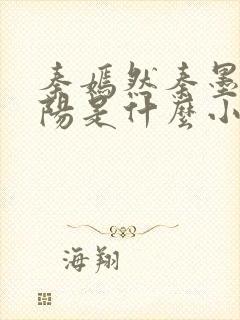 秦嫣然秦墨
陽是什麼小
海翔